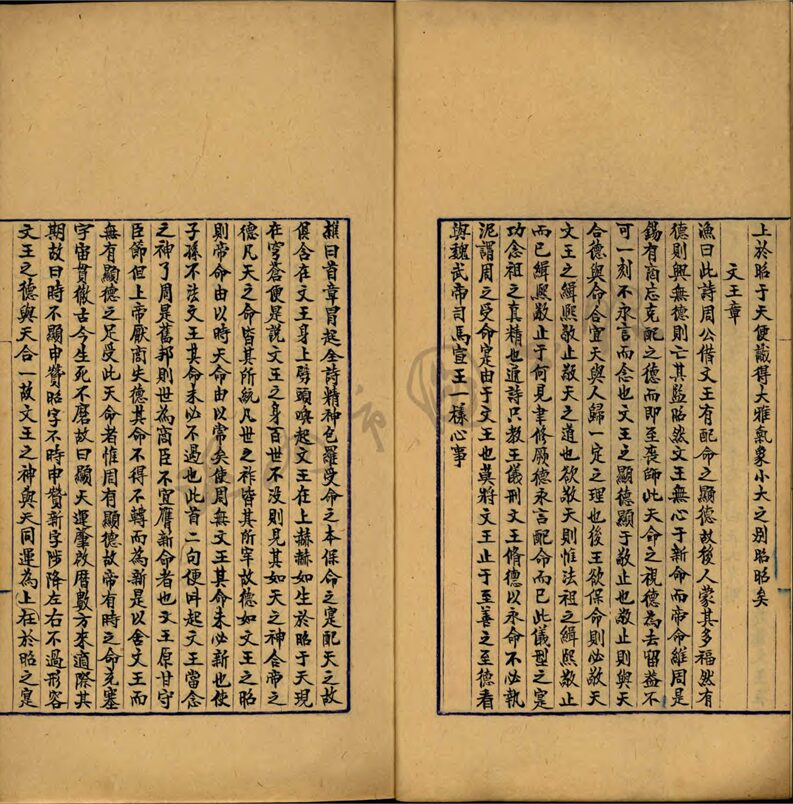 上於昭于天便識得大雅氣象小大之别昭昭矣
文王章
漁曰此詩周公借文王有配命之顯德故後人蒙其多福然有
德則興無德則亡其監昭然文王無心于新命而帝命維周是
錫有商忘克配之德而即至喪師此天命之視德為去留葢不
可一刻不永言而念也文王之顯德顯于敬止也敬止則與天
合德與命合宜天與人歸一定之理也後王欲保命則必敬天
文王之緝熙敬止敬天之道也欲敬天則惟法祖之緝熙敬止
而已緝熙敬止于何見聿修厥德永言配命而已此儀型之寔
功念祖之真精也通詩只教王儀刑文王脩德以永命不必執
泥謂周之受命寔由于文王也莫將文王止于至善之至德看
與魏武帝司馬宣王一樣心事
樵曰首章冒起全詩精神包羅受命之本保命之寔配天之故
俱含在文王身上劈頭喚起文王在上赫赫如生於昭于天現
在穹蒼便是說文王之身百世不没則見其如天之神合帝之
德凡天之命皆其所統凡世之祚皆其所宰故德如文王之昭
則帝命由以時天命由以常矣使周無文王其命未必新也使
子孫不法文王其命未必不遏也此首二句便呌起文王當念
之神了周是舊邦則世為商臣不宜膺新命者也文王原甘守
臣節但上帝厭商失德其命不得不轉而為新是以舍文王而
無有顯德之足受此天命者惟周有顯德故帝有時之命充塞
宇宙貫徹古今生死不磨故曰顯天運肇啟曆數方來適際其
期故曰時不顯申贊昭字不時申贊新字陟降左右不過形容
文王之德與天合一故文王之神與天同運為上在於昭之寔